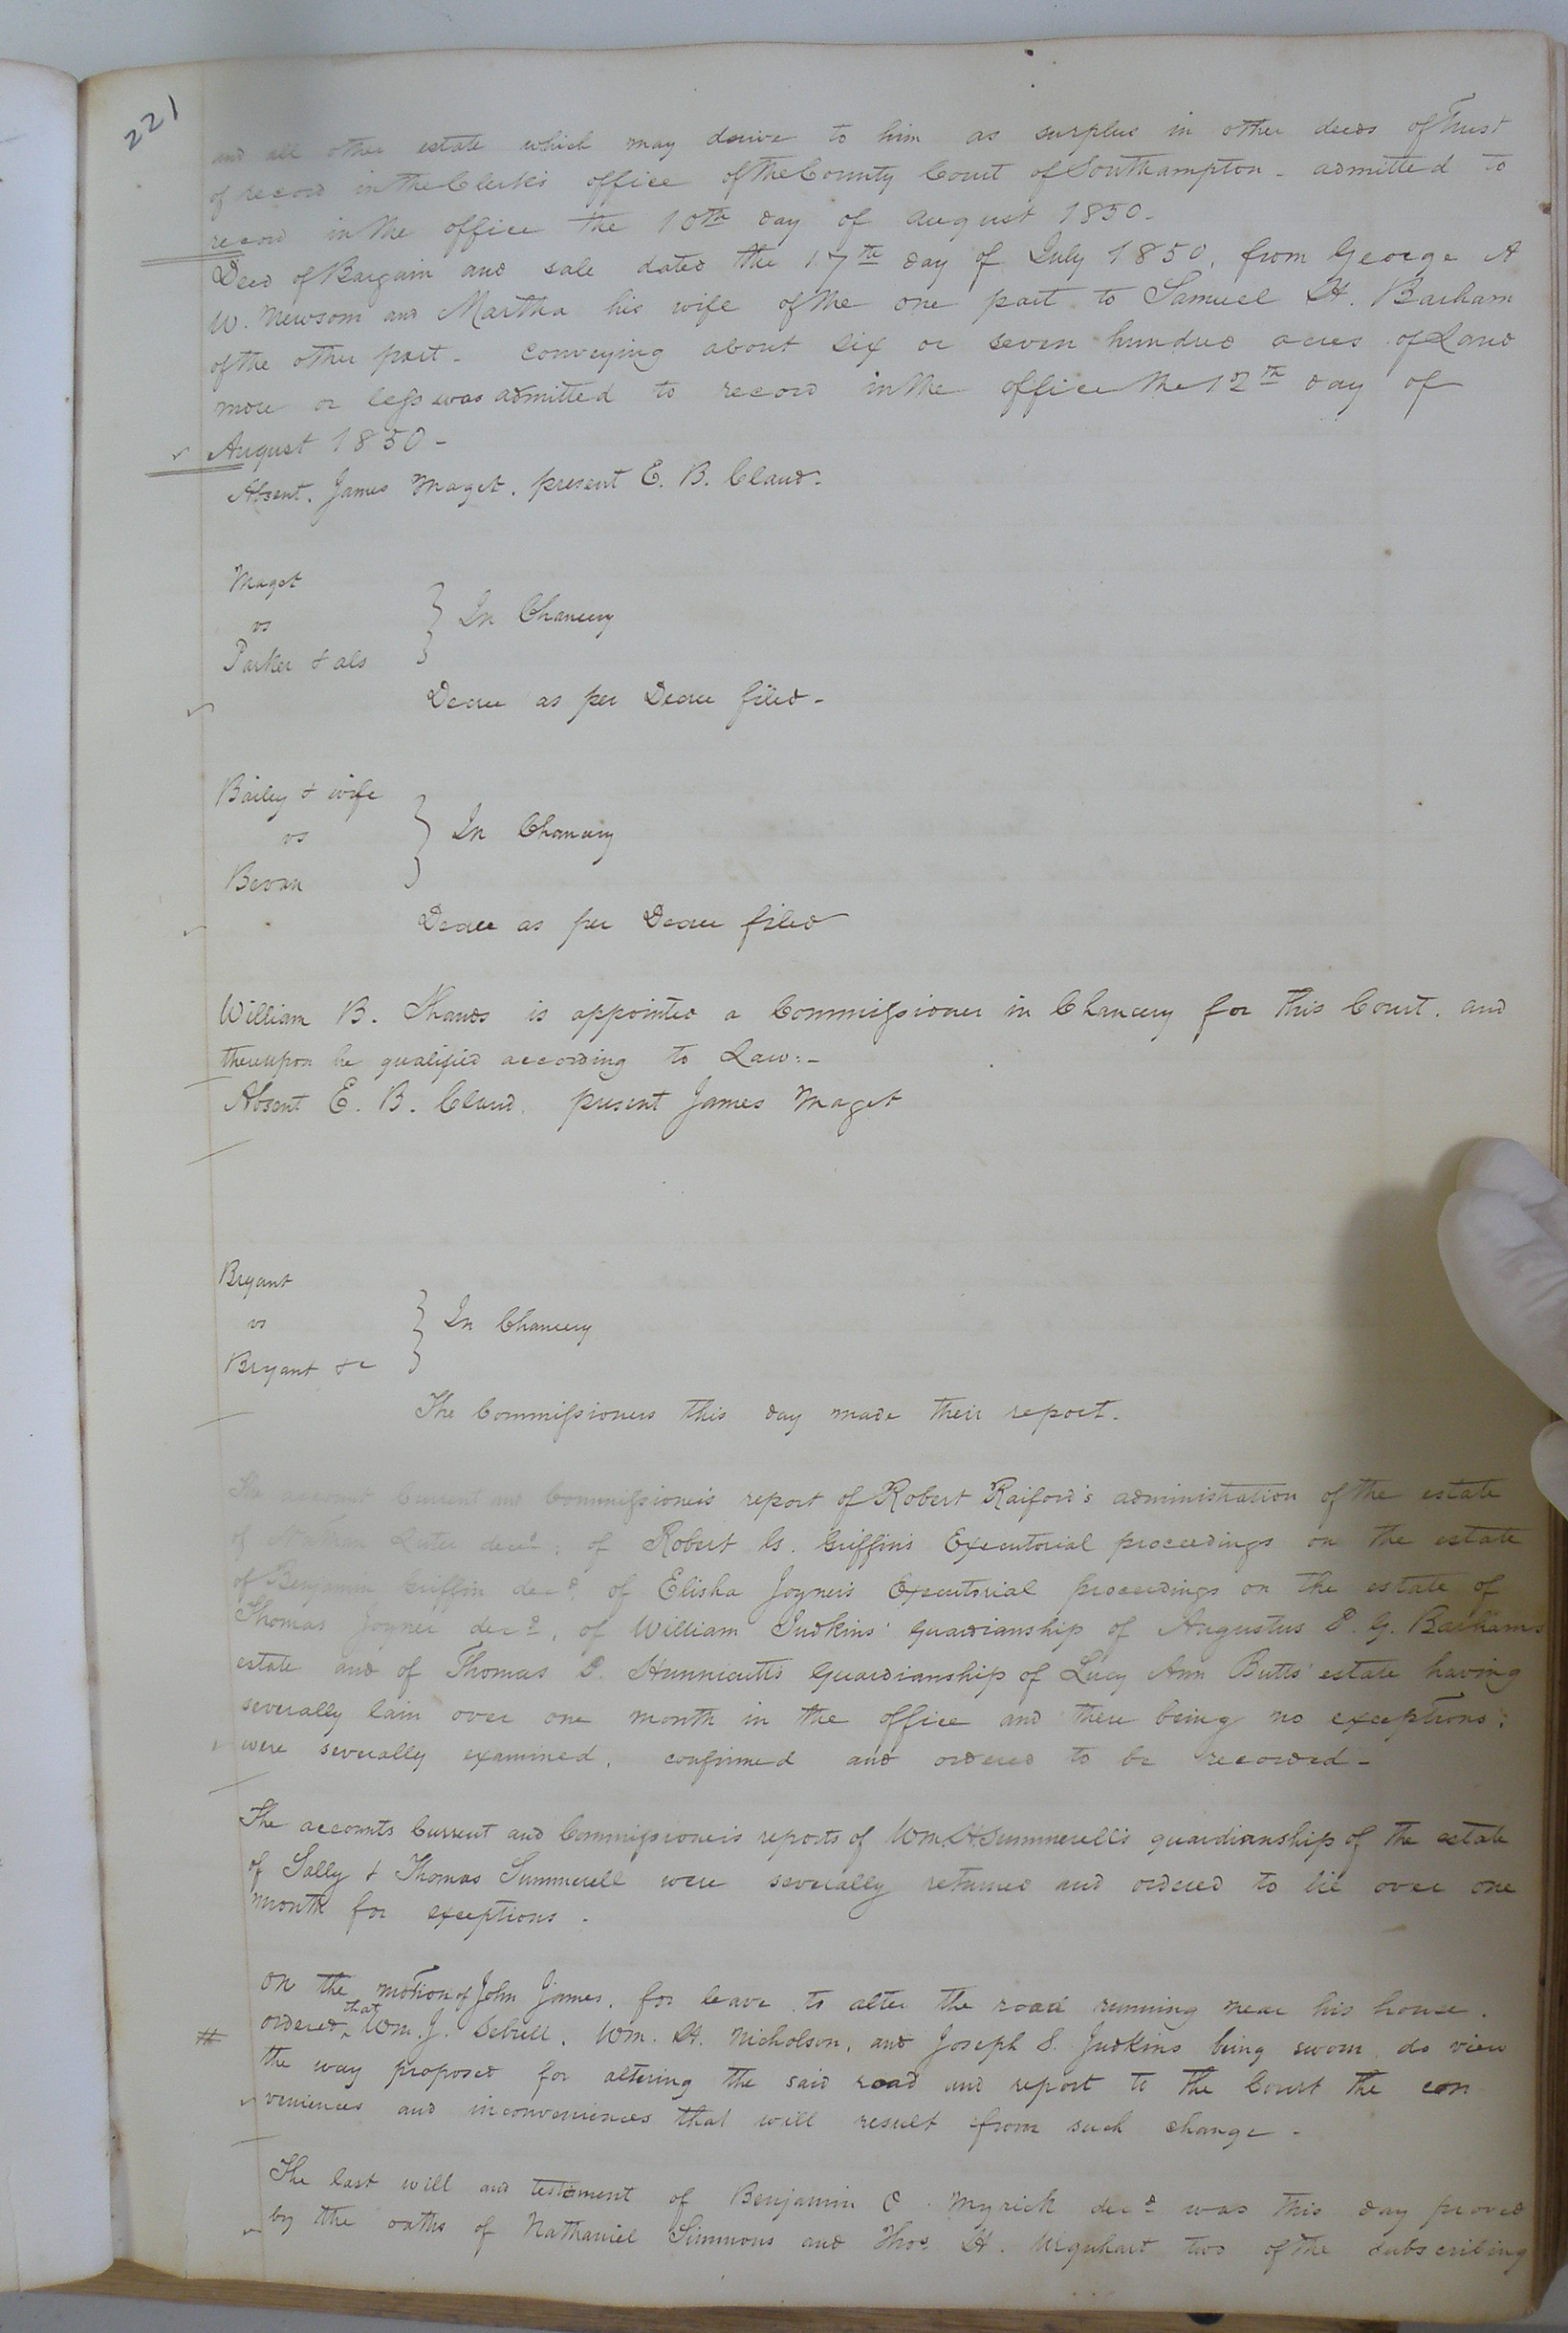 221
and all other estate which may derive to him as surplus in other deeds of Trust
of record in the Clerk's office of the County Court of Southampton - admitted to
record in the office the 10th day of august 1850 -
Deed of Bargain and sale dated the 17th day of July 1850, from George A
W. Newsom and Martha his wife of the one part to Samuel H. Barham
of the other part - conveying about six or seven hundred acres of Land
more or less was admitted to record in the office the 12th day of
August 1850 -
Absent. James Maget. present E. B. Claud.
Maget
vs } In Chancery
Parker & als
Decree as per Decree filed -
Bailey & wife
vs } In Chancery
Bevan
Decree as per Decree filed
William B. Shands is appointed a Commissioner in Chancery for this Court. and
thereupon he qualified according to Law: -
Absent E. B. Claud. present James Maget
Bryant
vs } In Chancery
Bryant &c
The Commissioners this day made their report.
The account Current and Commissioner's report of Robert Raiford's administration of the estate
of Nathan Luter decd: of Robert G. Griffin's Executorial proceedings on the estate
of Benjamin Griffin decd, of Elisha Joyner's Executorial proceedings on the estate of
Thomas Joyner decd, of William Judkins' guardianship of Augustus D. G. Barhams
estate and of Thomas P. Hunnicutt's Guardianship of Lucy Ann Butts' estate having
severally lain over one month in the office and there being no exceptions:
were severally examined, confirmed and ordered to be recorded -
The accounts Current and Commissioner's reports of Wm. H Summerell's guardianship of the estate
of Sally & Thomas Summerell were severally returned and ordered to lie over one
month for exceptions.
On the motion of John James, for leave to alter the road running near his house.
ordered that Wm. J. Sebrell, Wm. H. Nicholson, and Joseph S. Judkins being sworn do view
the way proposed for altering the said road and report to the Court the con
veniences and inconveniences that will result from such change -
The last will and testament of Benjamin C. Myrick decd was this day proved
by the oaths of Nathaniel Simmons and Thos. H. Urquhart two of the subscribing